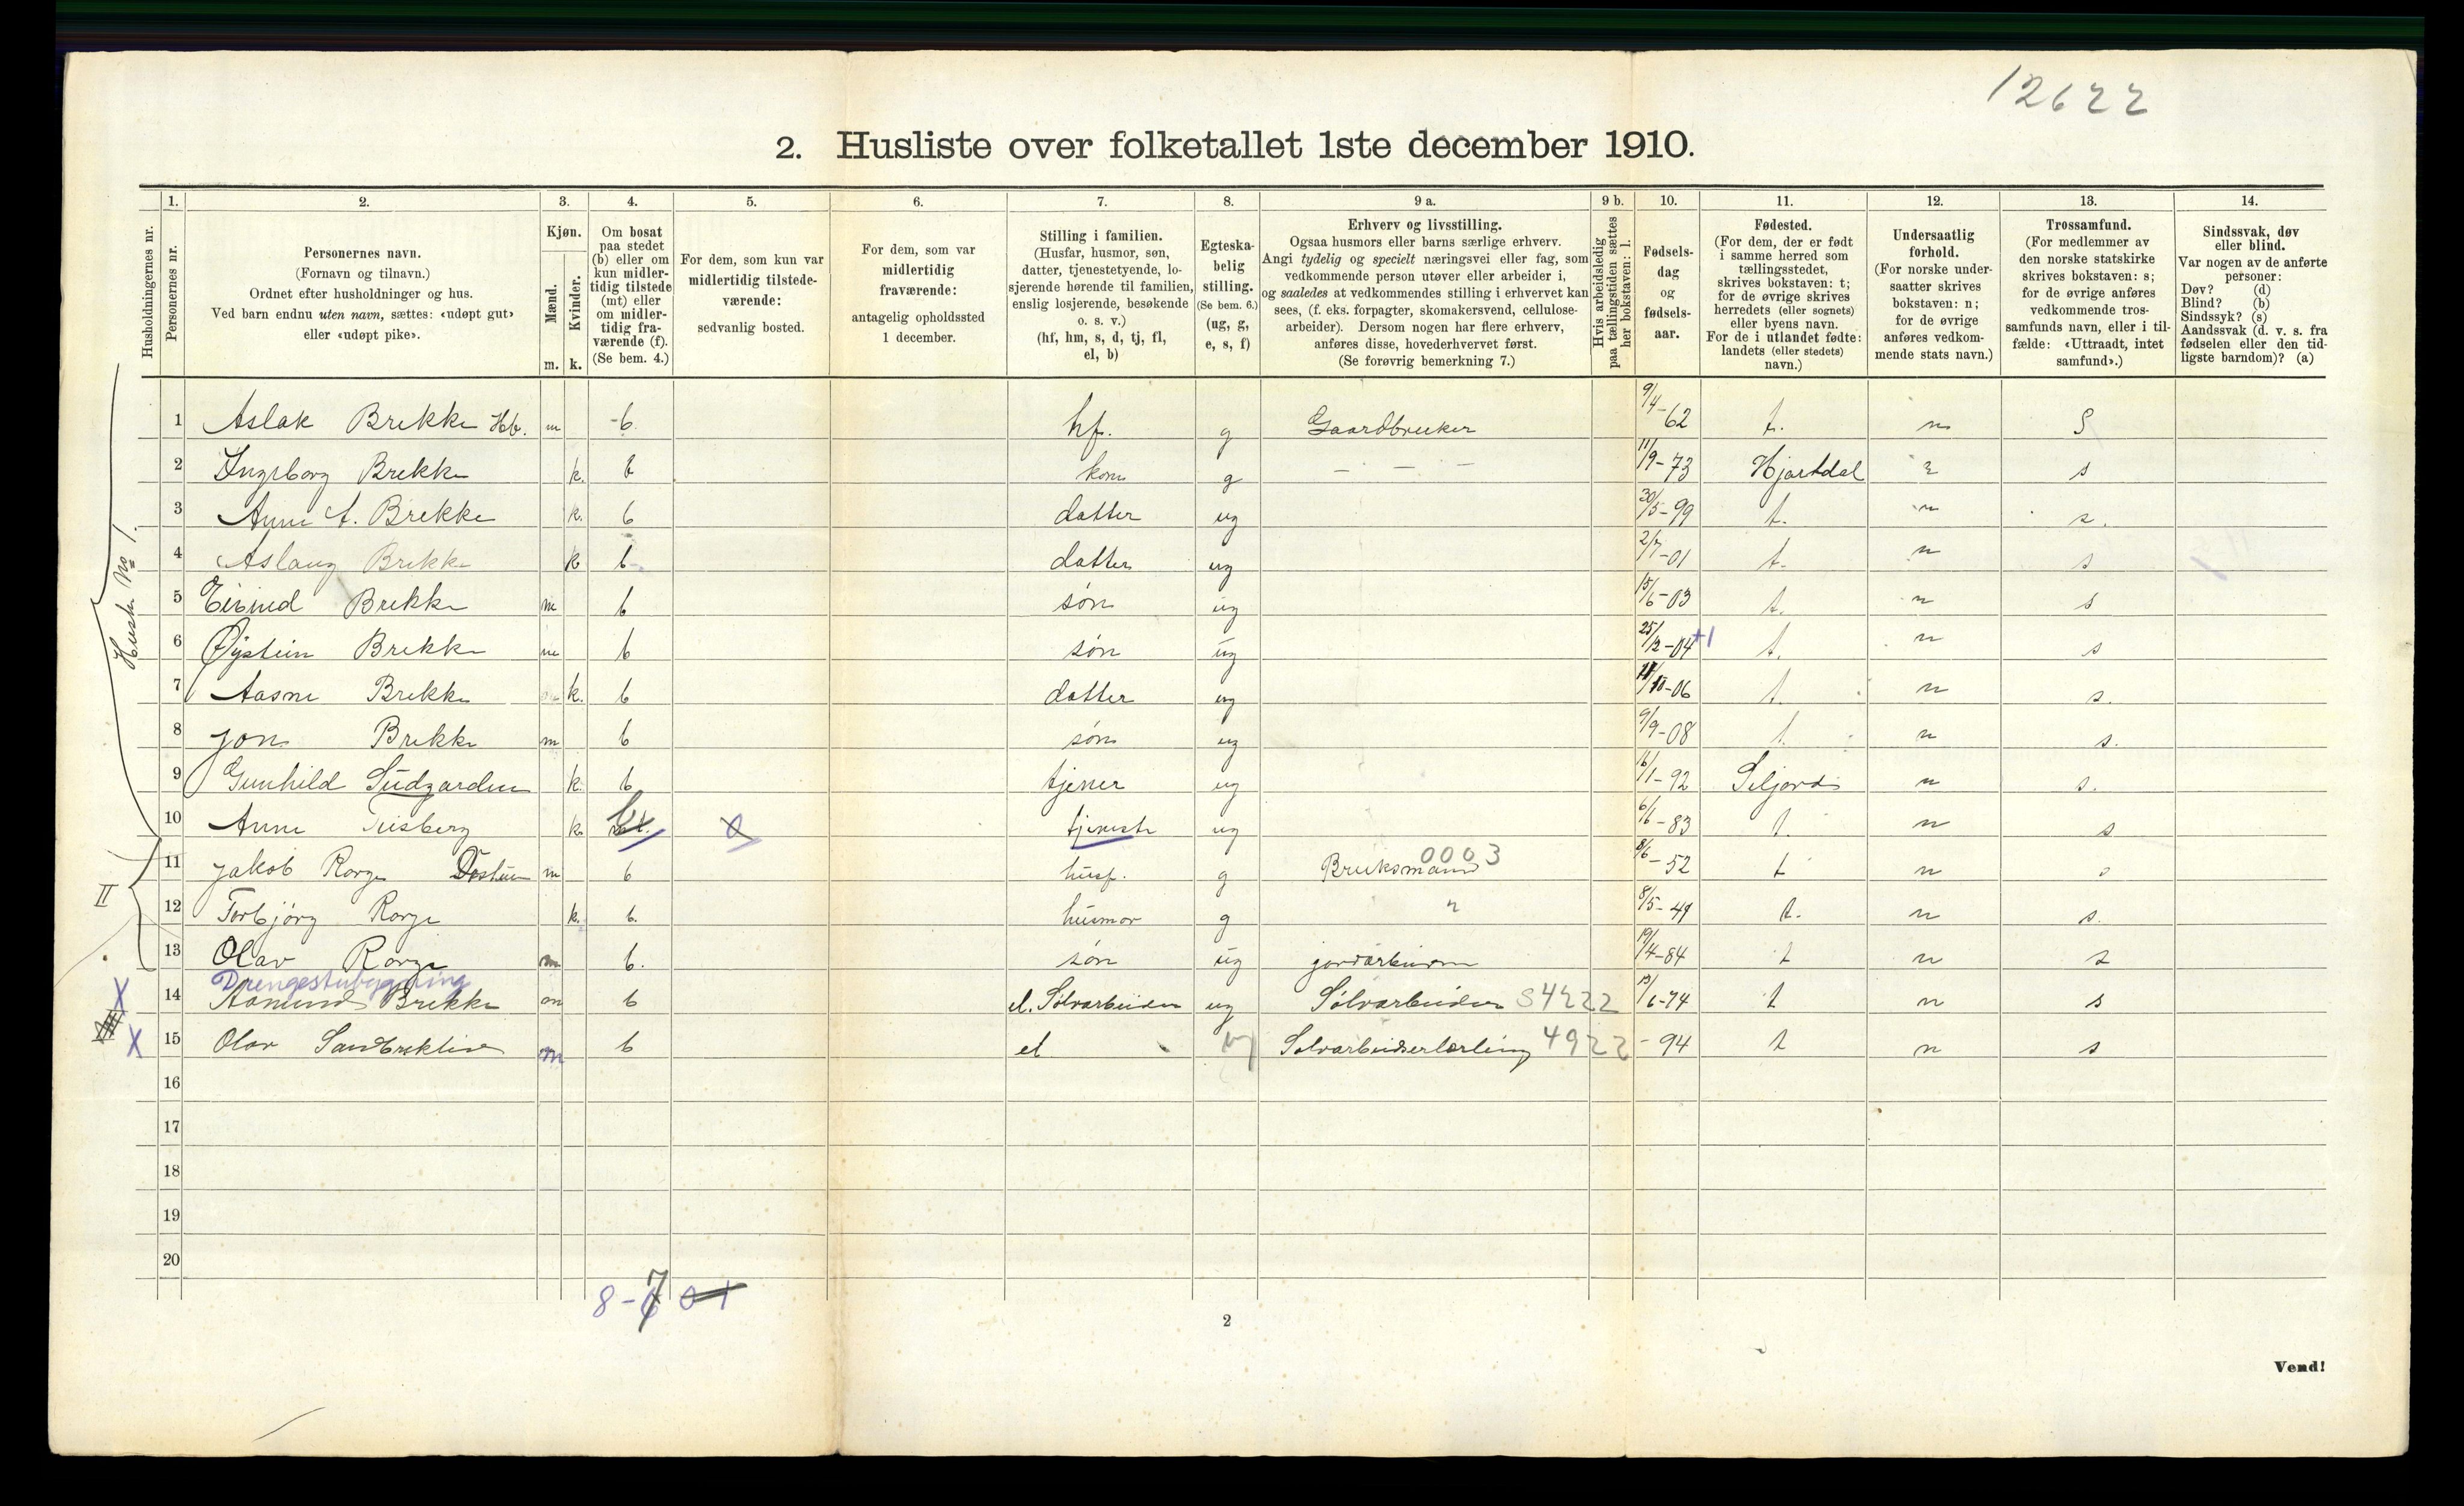 12622
2. Husliste over folketallet 1ste december 1910.
Husholdningernes nr.
1. Personernes nr.
2. Personernes navn.
(Fornavn og tilnavn.)
Ordnet efter husholdninger og hus.
Ved barn endnu uten navn, sættes: «udøpt gut»
eller «udøpt pike».
3. Kjøn.
Mænd. m.
Kvinder. k.
4. Om bosat
paa stedet
(b) eller om
kun midler-
tidig tilstede
(mt) eller
om midler-
tidig fra-
værende (f).
(Se bem. 4.)
5. For dem, som kun var
midlertidig tilstede-
værende:
sedvanlig bosted.
6. For dem, som var
midlertidig
fraværende:
antagelig opholdssted
1 december.
7. Stilling i familien.
(Husfar, husmor, søn,
datter, tjenestetyende, lo-
sjerende hørende til familien,
enslig losjerende, besøkende
o. s. v.)
(hf, hm, s, d, tj, fl,
el, b)
8. Egteska-
belig
stilling.
(Se bem. 6.)
(ug, g,
e, s, f)
9 a. Erhverv og livsstilling.
Ogsaa husmors eller barns særlige erhverv.
Angi tydelig og specielt næringsvei eller fag, som
vedkommende person utøver eller arbeider i,
og saaledes at vedkommendes stilling i erhvervet kan
sees, (f. eks. forpagter, skomakersvend, cellulose-
arbeider). Dersom nogen har flere erhverv,
anføres disse, hovederhvervet først.
(Se forøvrig bemerkning 7.)
9 b. Hvis arbeidsledig
paa tællingstiden sættes
her bokstaven: l.
10. Fødsels-
dag
og
fødsels-
aar.
11. Fødested.
(For dem, der er født
i samme herred som
tællingsstedet,
skrives bokstaven: t;
for de øvrige skrives
herredets (eller sognets)
eller byens navn.
For de i utlandet fødte:
landets (eller stedets)
navn.)
12. Undersaatlig
forhold.
(For norske under-
saatter skrives
bokstaven: n;
for de øvrige
anføres vedkom-
mende stats navn.)
13. Trossamfund.
(For medlemmer av
den norske statskirke
skrives bokstaven: s;
for de øvrige anføres
vedkommende tros-
samfunds navn, eller i til-
fælde: «Uttraadt, intet
samfund».)
14. Sindssvak, døv
eller blind.
Var nogen av de anførte
personer:
Døv? (d)
Blind? (b)
Sindssyk? (s)
Aandssvak (d. v. s. fra
fødselen eller den tid-
ligste barndom)? (a)
Hush. No 1.
1 Aslak Brekke Hb. m b. hf. g Gaardbruker 9/4-62 t. n S
2 Ingeborg Brekke k. b kone g — — — 11/9-73 Hjartdal n s
3 Anne A. Brekke k. b datter ug 30/5-99 t. n s.
4 Aslaug Brekke k b datter ug 2/7-01 t. n s
5 Eivind Brekke m b søn ug 15/6-03 t. n s
6 Øystein Brekke m b søn ug 25/12-04 +1 t. n s
7 Aasne Brekke k. b datter ug 11/10-06 t. n s.
8 Jon Brekke m b søn ug 9/9-08 t. n s.
9 Gunhild Sudgarden k. b tjener ug 16/1-92 Seljord n s.
10 Anne k. 0 tjeneste ug 6/1-83 t. n s
II
11 Jakob Rorge m b husf. g Bruksmand 0003 8/6-52 t n s
12 Torbjørg Rorge k. b. husmor g " 8/5-49 t. n s.
13 Olav Rorge m b. søn ug 19/4-84 t n s
Drengestubygning
X 14 Aamund Brekke m b el. Sølvarbeider ug Sølvarbeider S4222 13/6-74 t n s
X 15 Olav m b el ug Sølvarbeiderlærling 4922 - 94 t n s
16
17
18
19
20
8-7 0 1
2
Vend!